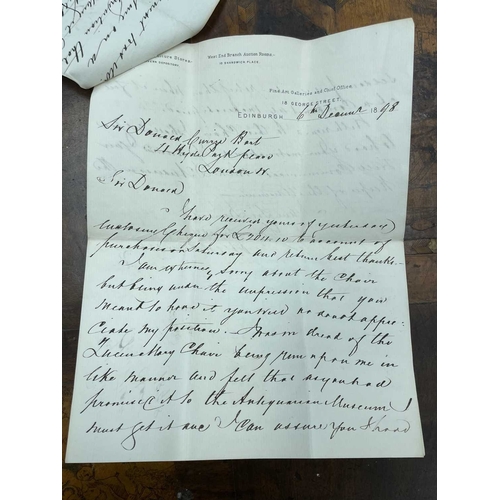 West End Branch Auction Rooms.
11 SHANDWICK PLACE.
Fine Art Galleries and Chief Office
18 GEORGE STREET
EDINBURGH 6th Decemr 1898
Sir Donald Currie Bart
Hyde Park Place
London W
Sir Donald
I have received yours of yesterday
enclosing cheque for to account of
purchases on Saturday and return best thanks
I am extremely sorry about the Chair
but being under the impression that you
meant to have it you will no doubt appre
ciate my position. I was in dread of the
Queen Mary Chair being run upon me in
like manner and felt that as you had
promised it to the Antiquarian Museum I
must get it and I can assure you I had